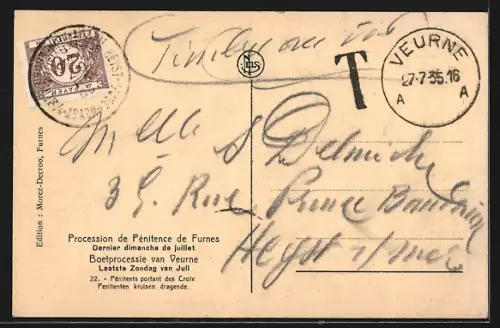 Timbre au dos
T
VEURNE
27-7.35.16
A A
20
A PAYER
HEIST
NELS
Melle S Delmiche
39 Rue Prince Baudouin
Heyst s/mer
Edition : Morez-Decroo, Furnes
Procession de Pénitence de Furnes
Dernier dimanche de juillet
Boetprocessie van Veurne
Laatste Zondag van Juli
22. - Pénitents portant des Croix
Penitenten kruisen dragende.